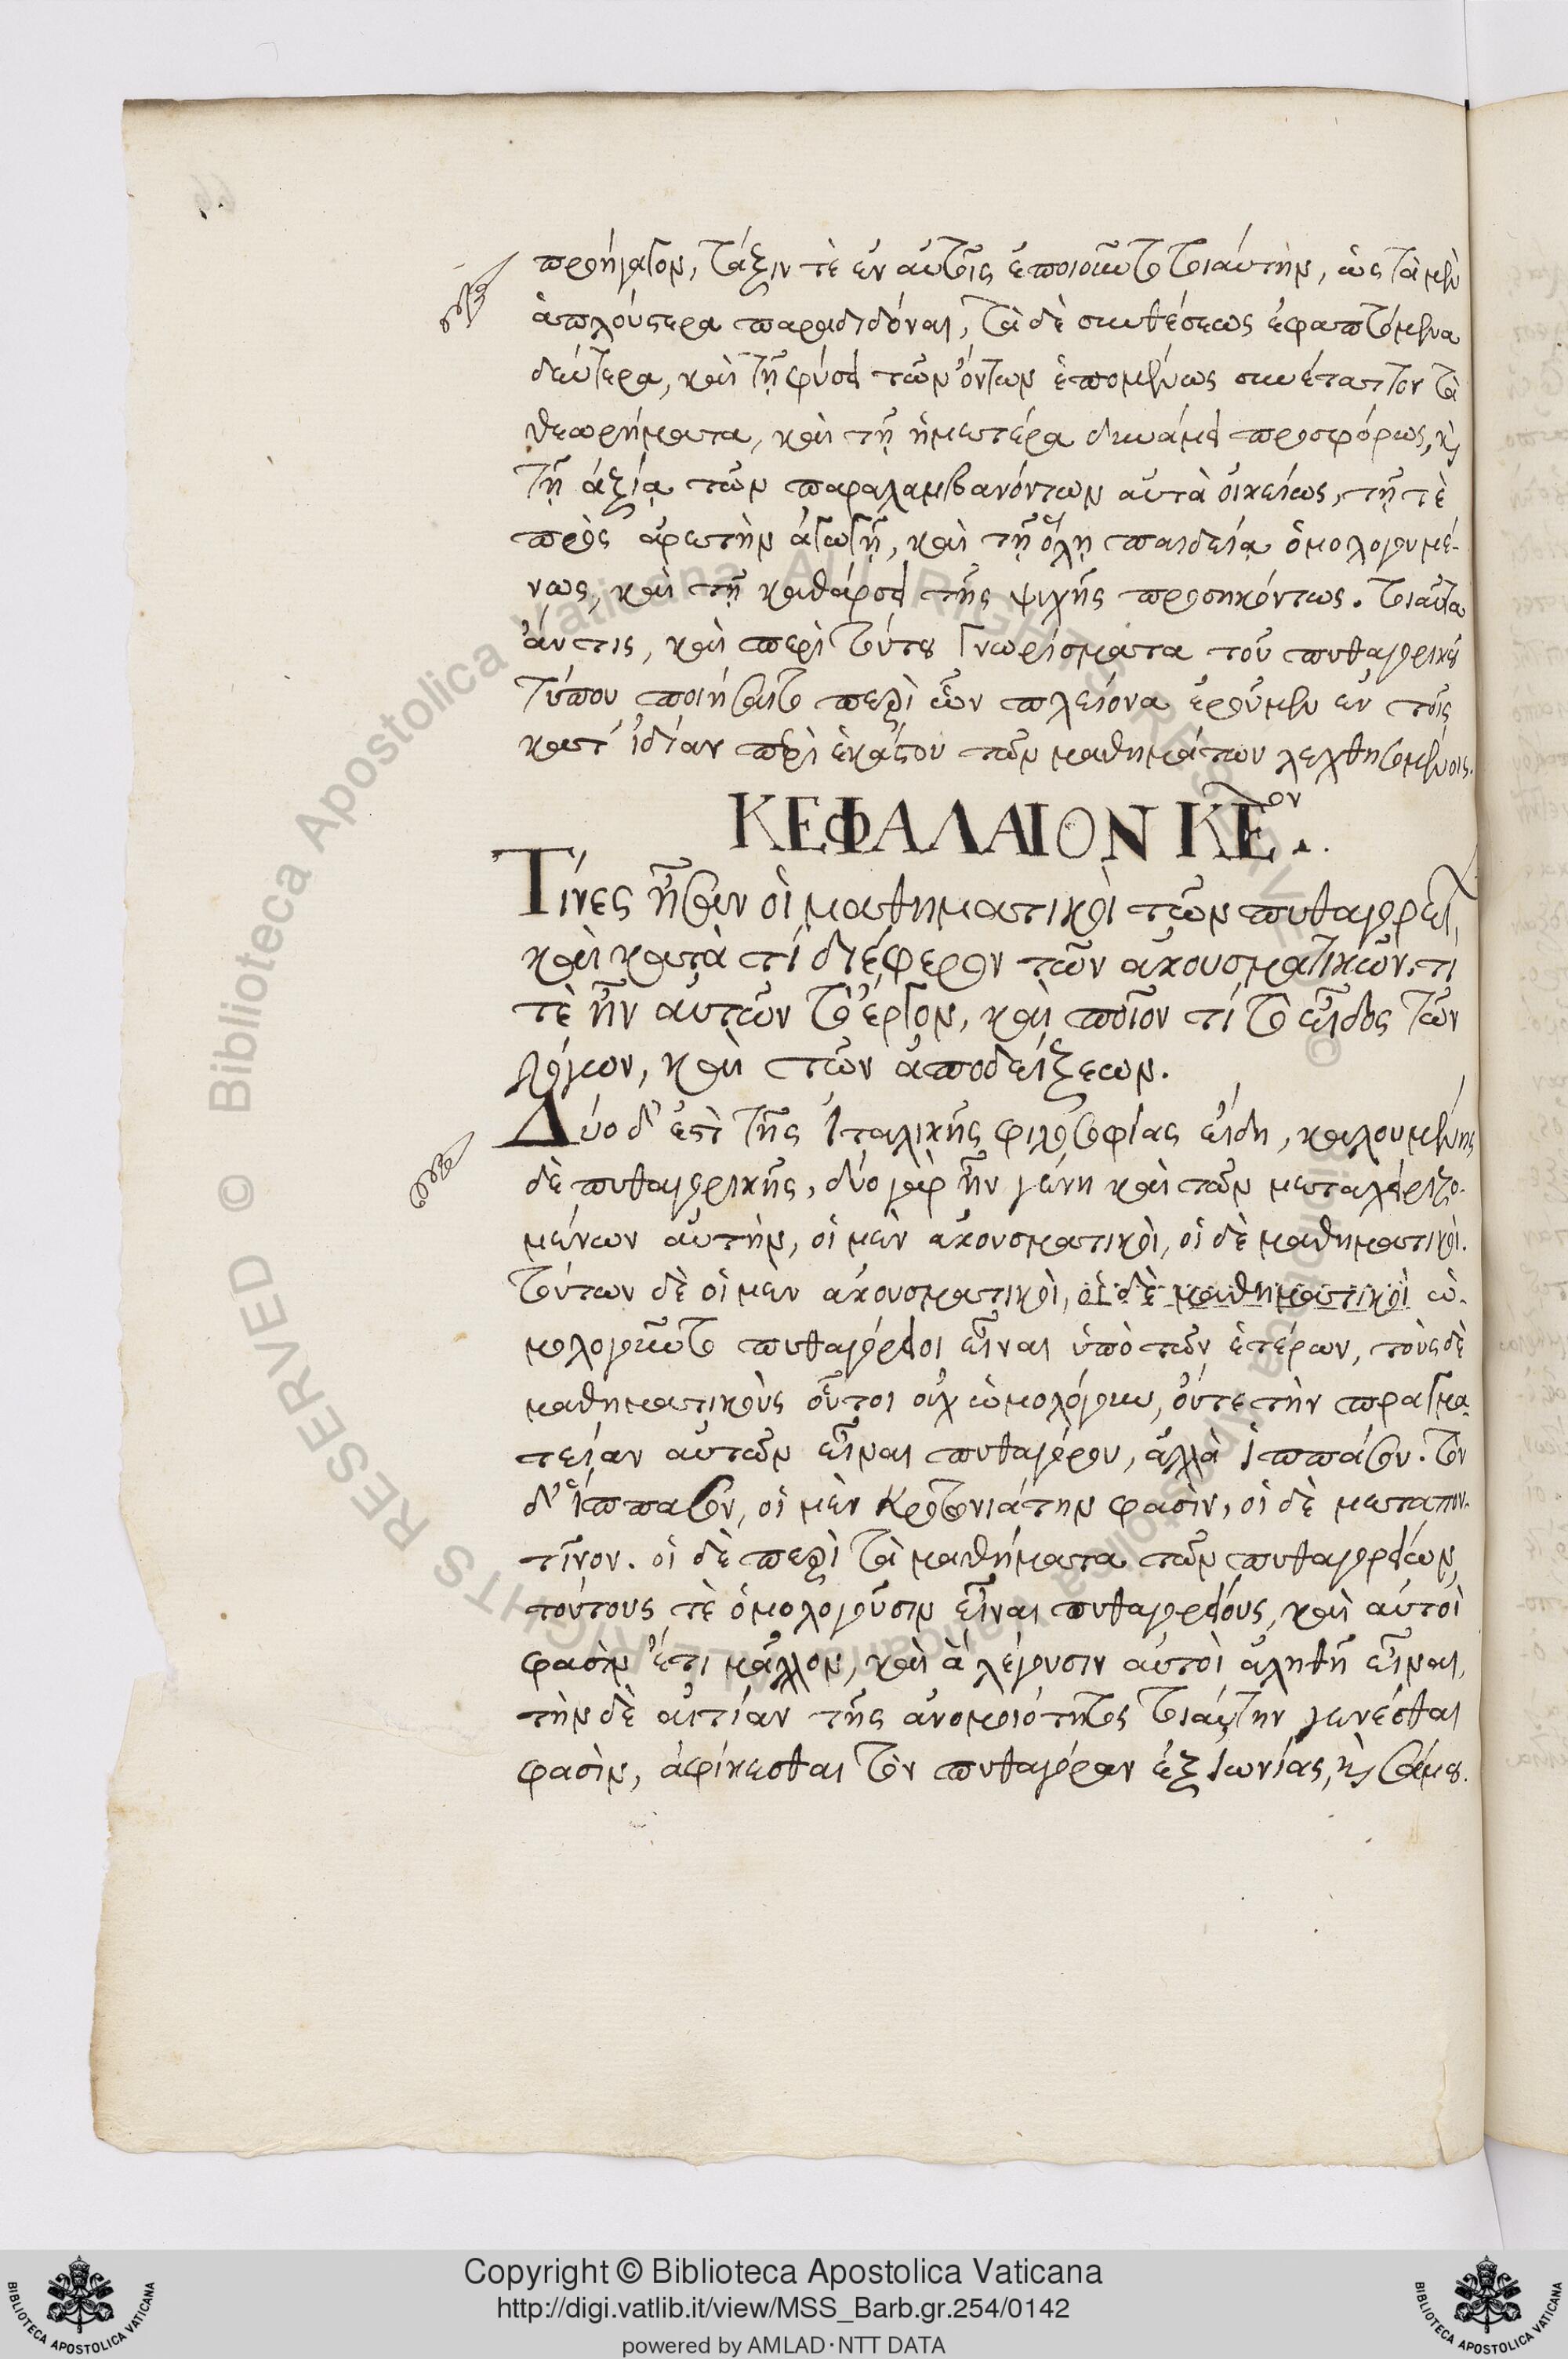 προήγαγον, τάξιν τὲ ἐν αὐτοῖς ἐποιοῦντο τοιαύτην, ὡς τὰ μὲν
ἁπλούστερα παραδιδόναι, τὰ δὲ συνθέσεως ἐφαπτόμενα
δεύτερα, καὶ τῇ φύσει τῶν ὄντων ἑπομένως συνέταττον τὰ
θεωρήματα, καὶ τῇ ἡμετέρα δυνάμει προσφόρως, καὶ
τῇ ἀξία τῶν παραλαμβανόντων αὐτὰ οἰκείως, τῇ τὲ
πρὸς ἀρετὴν ἀγωγῇ, καὶ τῇ ὅλη παιδεία ὁμολογουμέ-
νως, καὶ τῇ καθάρσει τῆς ψυχῆς προσηκόντως. τοιαῦτα
ἄν τις, καὶ περὶ τούτου γνωρίσματα τοῦ πυθαγορικοῦ
τύπου ποιήσαιτο περὶ ὧν πλείονα ἐροῦμεν ἐν τοῖς
κατ' ἰδίαν περὶ ἑκάστου τῶν μαθημάτων λεχθησομένοις.
ΚΕΦΑΛΑΙΟΝ ΚΕ^ον.
Τίνες ἦσαν οἱ μαθηματικοὶ τῶν πυθαγορεί,
καὶ κατὰ τί διέφερον τῶν ἀκουσματικῶν, τι
τὲ ἦν αὐτῶν τὸ ἔργον, καὶ ποῖον τί τὸ εἶδος τῶν
λόγων, καὶ τῶν ἀποδείξεων.
Δύο δ' ἐστὶ τῆς Ἰταλικῆς φιλοσοφίας εἴδη, καλουμένης
δὲ πυθαγορικῆς, δύο γὰρ ἦν γένη καὶ τῶν μεταχειριζο-
μένων αὐτὴν, οἱ μὲν ἀκουσματικοὶ, οἱ δὲ μαθηματικοὶ.
τούτων δὲ οἱ μὲν ἀκουσματικοὶ, οἱ δὲ μαθηματικοὶ ὡ-
μολογοῦντο πυθαγόρειοι εἶναι ὑπὸ τῶν ἑτέρων, τοὺς δὲ
μαθηματικοὺς οὗτοι οὐχ ὡμολόγουν, οὔτε τὴν πραγμα-
τείαν αὐτῶν εἶναι πυθαγόρου, ἀλλὰ ἱππάσου. τὸν
δ' ἵππασον, οἱ μὲν Κροτωνιάτην φασὶν, οἱ δὲ μεταπον-
τῖνον. οἱ δὲ περὶ τὰ μαθήματα τῶν πυθαγορείων,
τούτους τὲ ὁμολογοῦσιν εἶναι πυθαγορείους, καὶ αὐτοὶ
φασὶν ἔτι μᾶλλον, καὶ ἃ λέγουσιν αὐτοὶ ἀληθῆ εἶναι,
τὴν δὲ αἰτίαν τῆς ἀνομοιότητος τοιαύτην γενέσθαι
φασὶν, ἀφίκεσθαι τὸν πυθαγόραν ἐξ Ἰωνίας, καὶ σάμου.
© Biblioteca Apostolica Vaticana ALL RIGHTS RESERVED
Copyright © Biblioteca Apostolica Vaticana
http://digi.vatlib.it/view/MSS_Barb.gr.254/0142
powered by AMLAD·NTT DATA
BIBLIOTECA APOSTOLICA VATICANA
BIBLIOTECA APOSTOLICA VATICANA